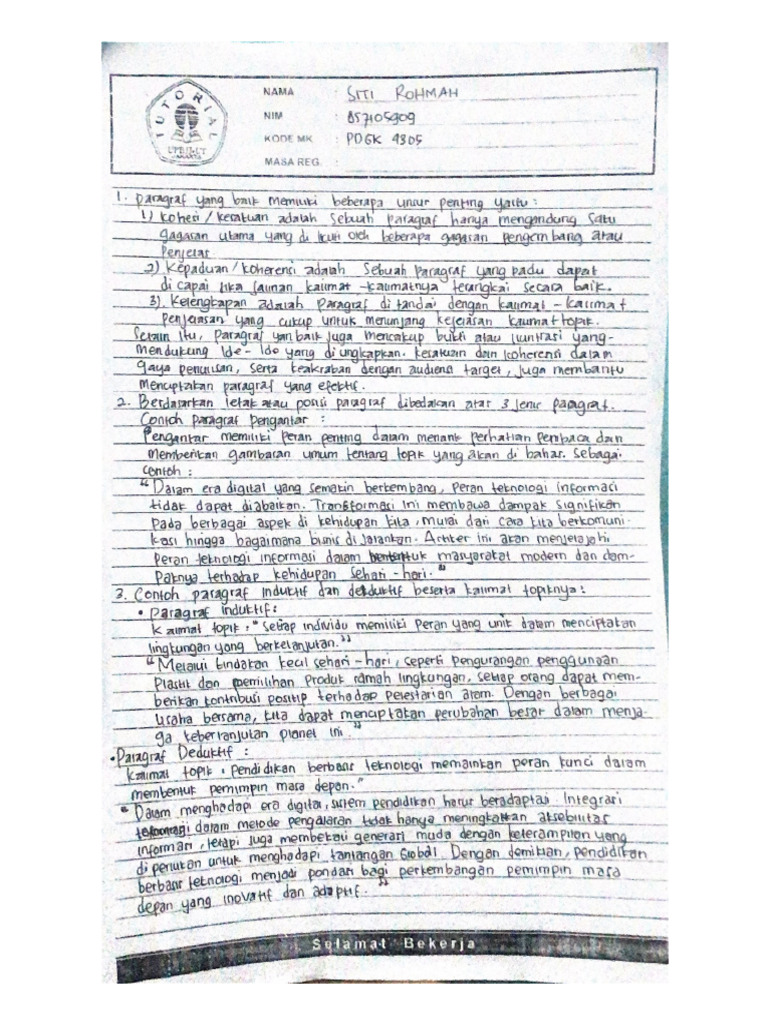 TUTORIAL
UPBJJ-UT
JAKARTA
NAMA : SITI ROHMAH
NIM : 857105909
KODE MK : PDGK 4305
MASA REG. :
1. Paragraf yang baik memiliki beberapa unsur penting yaitu :
1) Kohesi / kesatuan adalah sebuah paragraf hanya mengandung satu
gagasan utama yang di ikuti oleh beberapa gagasan pengembang atau
penjelas.
2) Kepaduan / koherensi adalah sebuah paragraf yang padu dapat
di capai jika jalinan kalimat -kalimatnya terangkai secara baik.
3). Kelengkapan adalah paragraf di tandai dengan kalimat - kalimat
penjelasan yang cukup untuk menunjang kejelasan kalimat topik.
Selain itu, paragraf yan baik juga mencakup bukti atau ilustrasi yang-
mendukung Ide - Ide yang di ungkapkan. kesatuan dan koherensi dalam
gaya penulisan, serta keakraban dengan audiens target, juga membantu
menciptakan paragraf yang efektif.
2. Berdasarkan letak atau posisi paragraf dibedakan atas 3 jenis paragraf.
Contoh paragraf pengantar :
Pengantar memiliki peran penting dalam menarik perhatian pembaca dan
memberikan gambaran umum tentang topik yang akan di bahas. Sebagai
contoh :
"Dalam era digital yang semakin berkembang, peran teknologi informasi
tidak dapat diabaikan. Transformasi ini membawa dampak signifikan
pada berbagai aspek di kehidupan kita, mulai dari cara kita berkomuni-
kasi hingga bagaimana bisnis di jalankan. Artikel ini akan menjelajahi
peran teknologi informasi dalam masyarakat modern dan dam-
paknya terhadap kehidupan sehari - hari."
3. Contoh paragraf induktif dan deduktif beserta kalimat topiknya :
• Paragraf induktif :
Kalimat topik : "Setiap individu memiliki peran yang unik dalam menciptakan
lingkungan yang berkelanjutan."
"Melalui tindakan kecil sehari - hari, seperti pengurangan penggunaan
plastik dan pemilihan produk ramah lingkungan, setiap orang dapat mem-
berikan kontribusi positip terhadap pelestarian alam. Dengan berbagai
usaha bersama, kita dapat menciptakan perubahan besar dalam menja-
ga keberlanjutan planet ini."
• Paragraf Deduktif :
Kalimat topik : Pendidikan berbasis teknologi memainkan peran kunci dalam
membentuk pemimpin masa depan."
"Dalam menghadapi era digital, sistem pendidikan harus beradaptasi. Integrasi
teknologi dalam metode pengajaran tidak hanya meningkatkan aksebilitas
informasi, tetapi juga membekali generasi muda dengan keterampilan yang
di perlukan untuk menghadapi tantangan Global. Dengan demikian, pendidikan
berbasis teknologi menjadi pondasi bagi perkembangan pemimpin masa
depan yang inovatif dan adaptif."
Selamat Bekerja